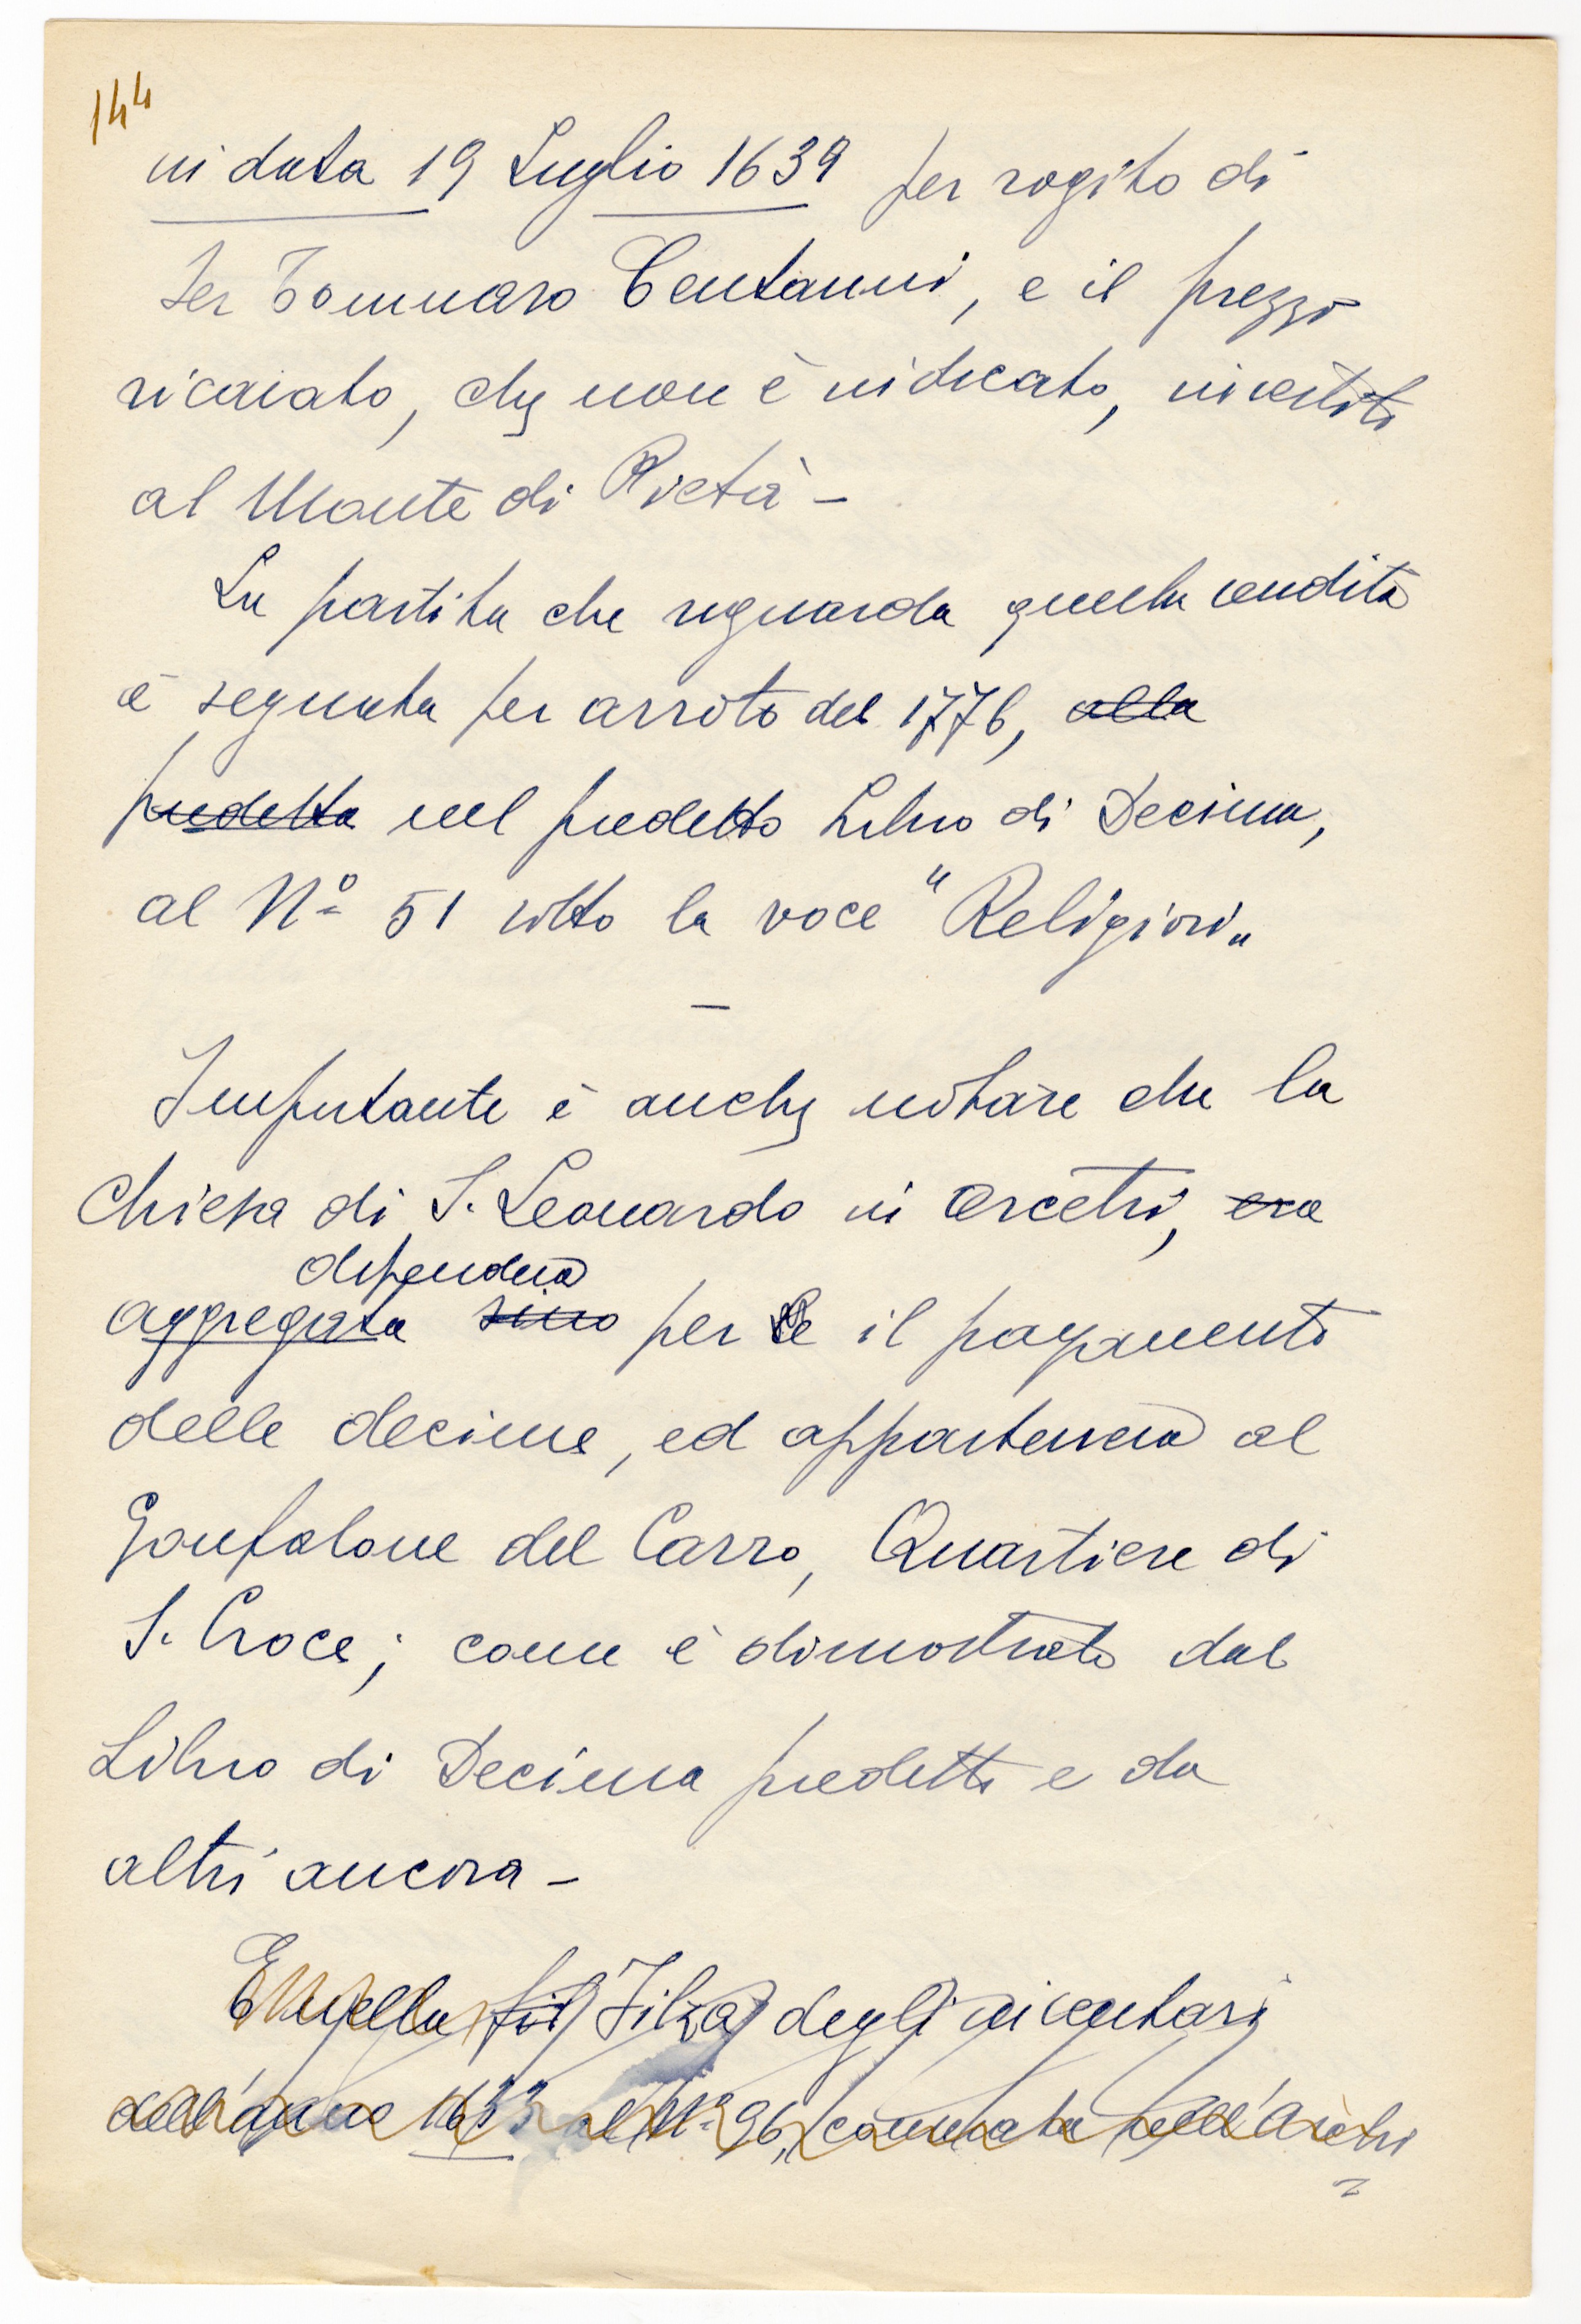 144
in data 19 Luglio 1639 per rogito di
Ser Tommaso Centanni, e il prezzo
ricavato, che non è indicato, investito
al Monte di Pietà -
La partita che riguarda quella vendita
è segnata per arroto del 1776, alla
predetta nel predetto Libro di Decima,
al Nº 51 sotto la voce "Religiosi"
—
Importante è anche notare che la
Chiesa di S. Leonardo in Arcetri, era
dipendeva
aggregata sino per il pagamento
delle decime, ed apparteneva al
Gonfalone del Carro, Quartiere di
S. Croce; come è dimostrato dal
Libro di Decima predetto e da
altri ancora -
E nella Filza degli inventari
dell'anno 1633 al Nº 96, conservata nell'Archi